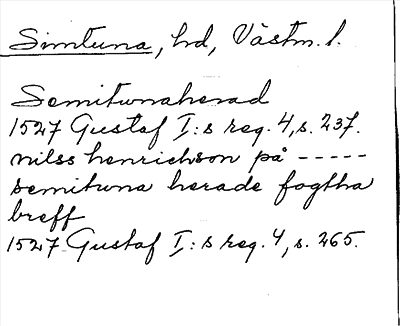 Simtuna, hd, Västm. l.
Semitunaherad
1527 Gustaf I:s reg. 4, s. 237.
nilss henrichson på -----
semituna herade fogtha
breff
1527 Gustaf I:s reg. 4, s. 265.